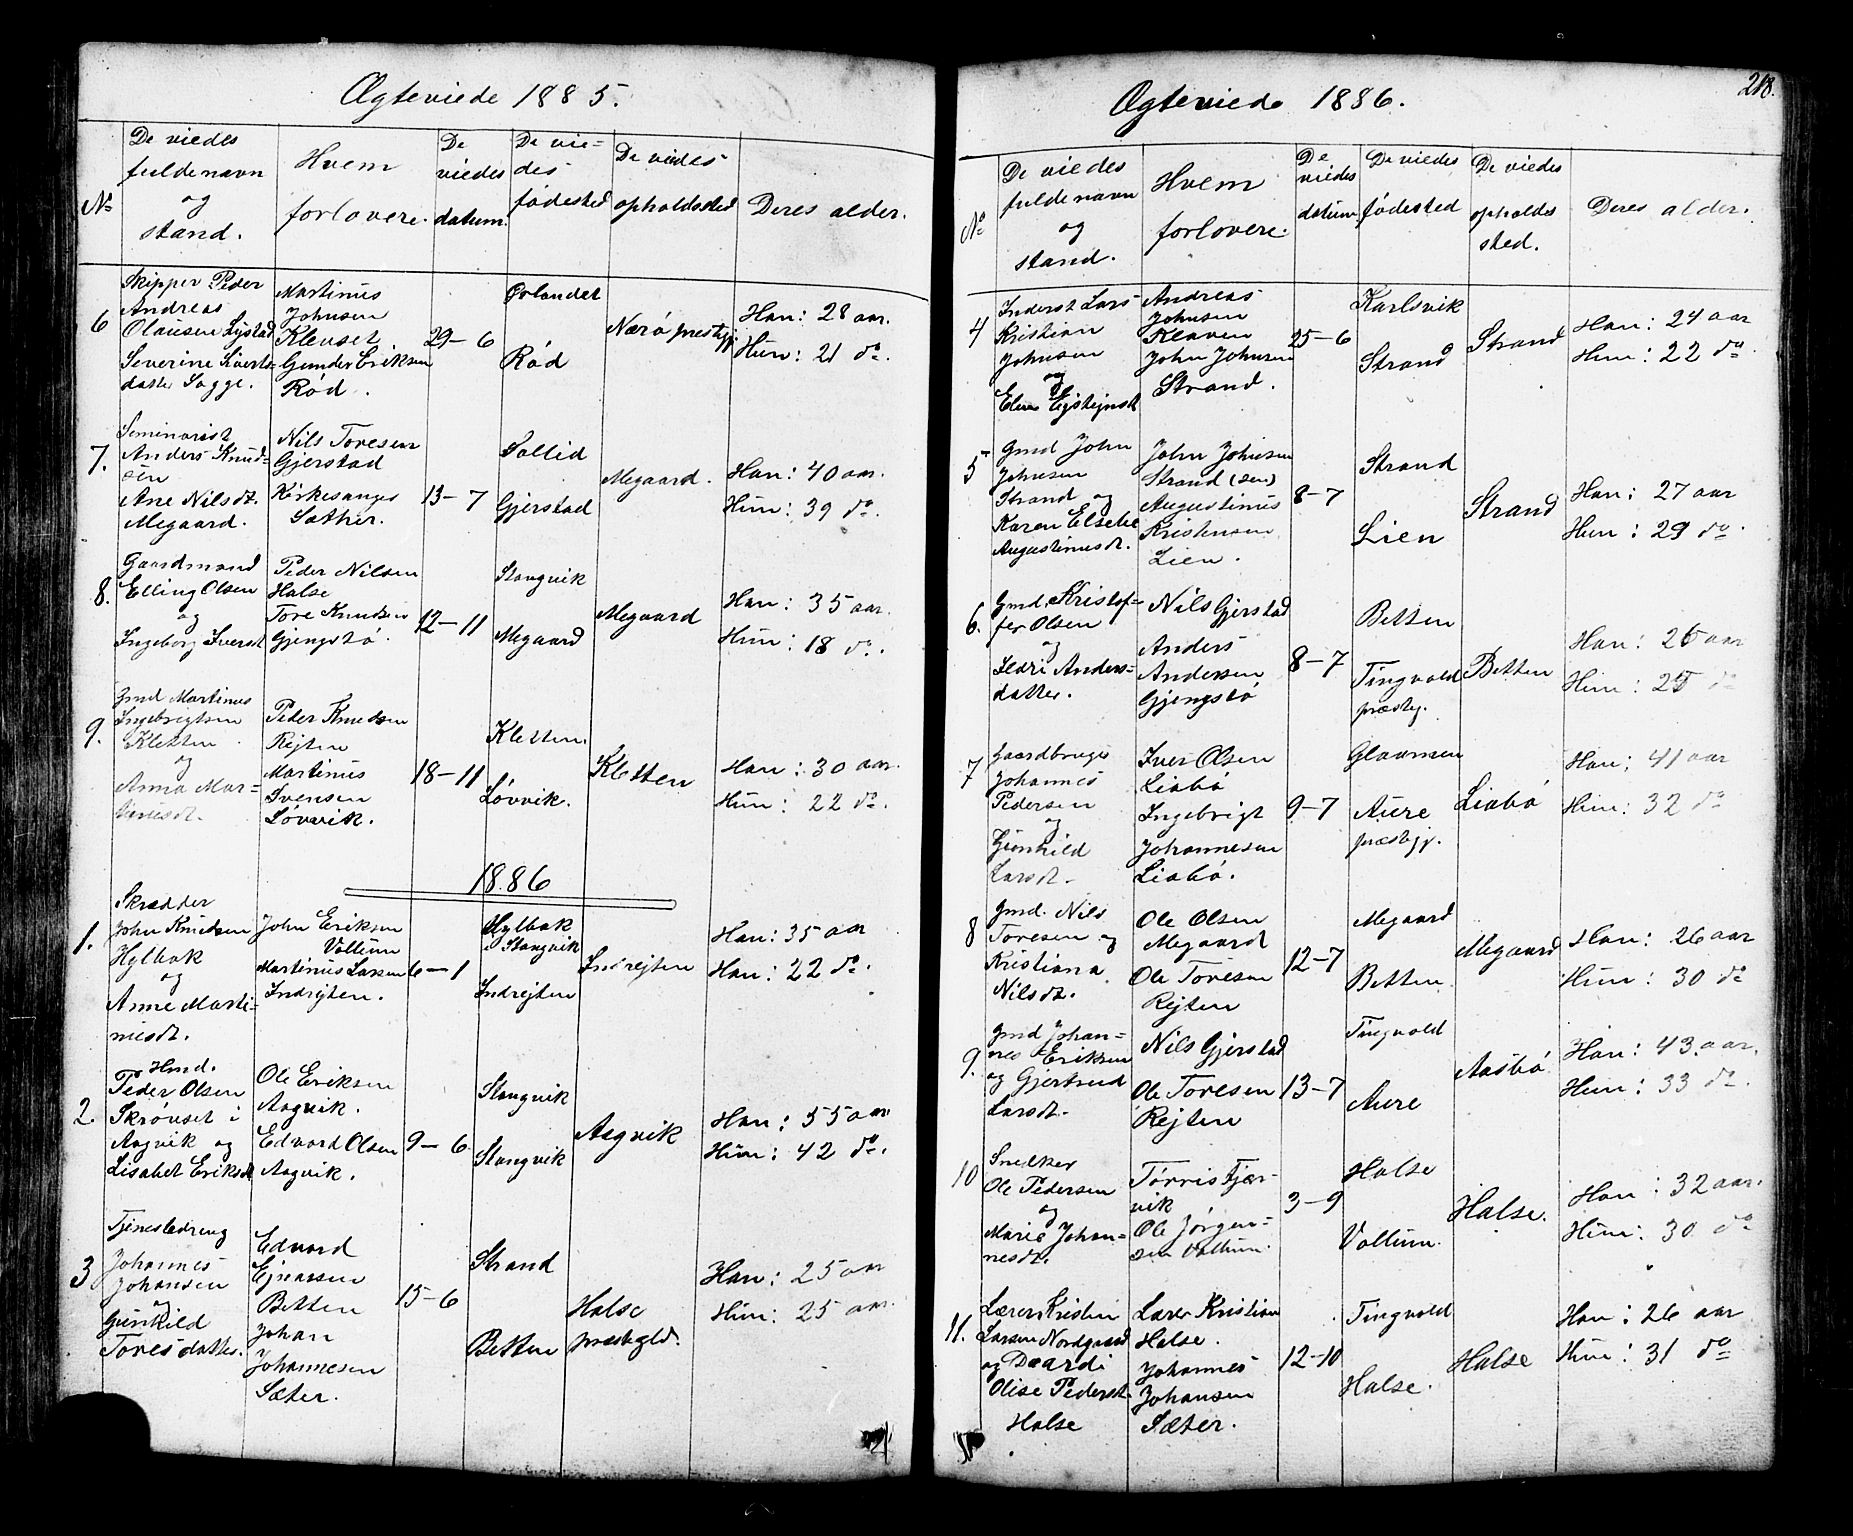 Ægteviede 1885.
No
De viedes
fulde navn
og
stand.
Hvem
forlovere.
De
viedes
datum.
De vie-
des
fødested
De viedes
opholdssted
Deres alder.
6
Skipper Peder
Andreas
Olausen Lystad
Severine Sivertsdatter Sogge.
Martinus
Johnsen
Klevset
Gunder Eriksen
Rød.
29-6
Ørlandet
Rød
Nærø præstegj.
Han: 28 aar.
Hun: 21 do.
7.
Seminarist
Anders Knud-
sen
Ane Nilsdt.
Megaard.
Nils Toresen
Gjerstad
Kirkesanger
Sæther.
13-7
Sollid
Gjerstad
Megaard.
Han: 40 aar.
Hun: 39 do.
8.
Gaardmand
Elling Olsen
og
Ingeborg Iversdt
Peder Nilsen
Halse
Tore Knudsen
Gjengstø.
12-11
Stangvik
Megaard
Megaard
Han: 35 aar.
Hun: 18 do.
9.
Gmd Martinus
Ingebrigtsen
Kletten
og
Anna Mar-
tinusdt.
Peder Knudsen
Rejten
Martinus
Svensen
Løvvik.
18-11
Kletten.
Løvvik.
Kletten
Han: 30 aar.
Hun: 22 do.
1886
1.
Skrædder
John Knudsen
Hylbak
og
Anne Marti-
nusdt.
John Eriksen
Vollum
Martinus Larsen
Indrejten.
6-1
Hylbak
i Stangvik
Indrejten
Indrejten
Han: 35 aar
Han: 22 do.
2.
Hmd.
Peder Olsen
Skrøvset i
Aagvik og
Lisabet Eriksdt
Ole Eriksen
Aagvik.
Edvard Olsen
Aagvik.
9-6
Stangvik
Stangvik
Aagvik
Han: 55 aar
Hun: 42 do.
3
Tjenestedreng
Johannes
Johansen
og
Gunhild
Toresdatter.
Edvard
Ejnarsen
Betten
Johan
Johannesen
Sæter.
15-6
Strand
Betten
Halse
præstegld.
Han: 25 aar
Hun: 25 aar.
Ægteviede 1886.
218.
No
De viedes
fulde navn
og
stand.
Hvem
forlovere.
De
viedes
datum
De viedes
fødested
De viedes
opholds
sted.
Deres alder.
4
Inderst Lars
Kristian
Johnsen
og
Elen Ejstejnsdt
Andreas
Johnsen
Klaven
John Johnsen
Strand.
25-6
Karlsvik
Strand
Strand
Han: 24 aar
Hun: 22 do.
5
Gmd John
Johnsen
Strand og
Karen Elsebe
Augustinusdt.
John Johnsen
Strand (sen)
Augustinus
Kristensen
Lien.
8-7
Strand
Lien
Strand
Han: 27 aar
Hun: 29 do.
6.
Gmd. Kristof-
fer Olsen
og
Ildri Anders-
datter.
Nils Gjerstad
Anders
Andersen
Gjengstø
8-7
Betten
Tingvold
præsteg.
Betten
Han: 26 aar
Hun: 25 do
7
Gaardbruger
Johannes
Pedersen
og
Gunhild
Larsdt.
Iver Olsen
Liabø
Ingebrigt
Johannesen
Liabø.
9-7
Glaamen
Aure
præstegj.
Liabø
Han: 41 aar
Hun: 32 do
8
Gmd. Nils
Toresen og
Kristiana
Nilsdt.
Ole Olsen
Megaard
Ole Toresen
Rejten
12-7
Megaard
Betten.
Megaard
Han: 26 aar
Hun: 30 do
9.
Gmd Johan-
nes Eriksen
og Gjertrud
Larsdt.
Nils Gjerstad
Ole Toresen
Rejten
13-7
Tingvold
Aure
Aasbø
Han: 43 aar.
Hun: 33 do.
10
Snedker
Ole Pedersen
og
Marie Johan-
nesdt.
Tørris Fjær-
vik
Ole Jørgen-
sen Vollum.
3-9
Halse
Vollum.
Halse.
Han: 32 aar.
Hun: 30 do
11.
Lærer Kristen
Larsen Nordgaard
og Daardi
Olise Pedersdt.
Halse
Lærer Kristian
Halse.
Johannes
Johansen
Sæter.
12-10
Tingvold
Halse.
Halse
Han: 26 aar
Hun: 31 do